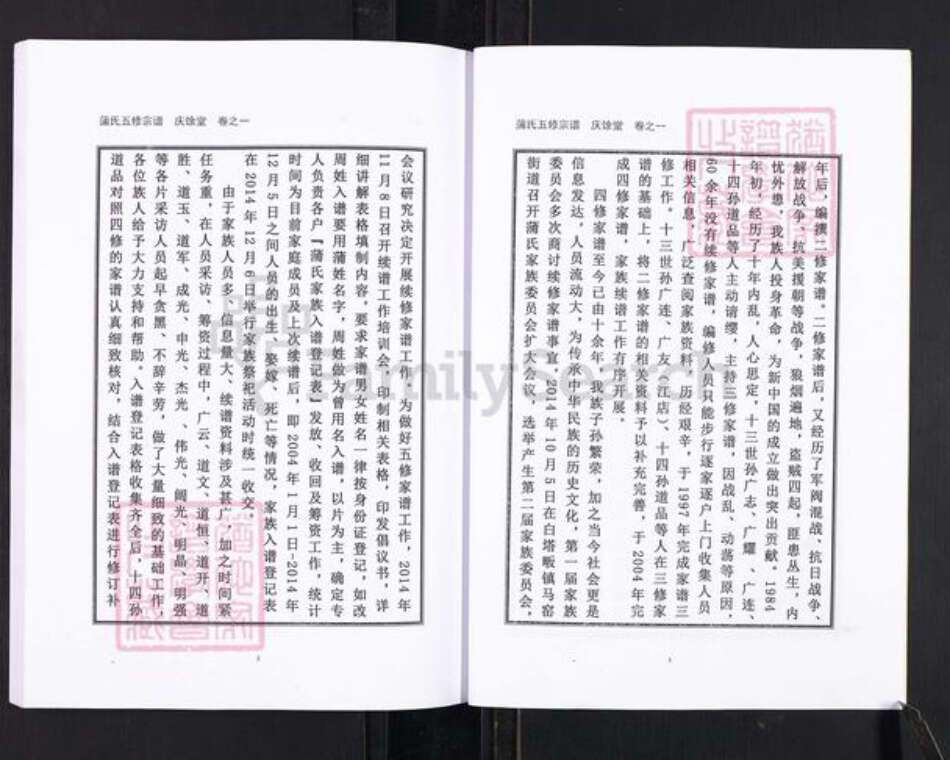 蒲氏五修宗谱 庆馀堂 卷之一
年后，编撰二修家谱。二修家谱后，又经历了军阀混战、抗日战争、
解放战争、抗美援朝等战争，狼烟遍地，盗贼四起，匪患丛生，内
忧外患，我族人投身革命，为新中国的成立做出突出贡献。1984
年初，经历了十年内乱，人心思定，十三世孙广志、广耀、广连、
十四孙道品等人主动请缨，主持三修家谱，因战乱、动荡等原因，
60 余年没有续修家谱，编修人员只能步行逐家逐户上门收集人员
相关信息，广泛查阅家族资料，历经艰辛，于 1997 年完成家谱三
修工作。十三世孙广连、广友（江店）、十四孙道品等人在三修家
谱的基础上，将二修家谱的相关资料予以补充完善，于 2004 年完
成四修家谱，家族续谱工作有序开展。
四修家谱至今已由十余年，我族子孙繁荣，加之当今社会更是
信息发达，人员流动大，为传承中华民族的历史文化，第一届家族
委员会多次商讨续修家谱事宜，2014 年 10 月 5 日在白塔畈镇马窑
街道召开蒲氏家族委员会扩大会议，选举产生第二届家族委员会，
1
蒲氏五修宗谱 庆馀堂 卷之一
会议研究决定开展续修家谱工作。为做好五修家谱工作，2014 年
11 月 8 日召开续谱工作培训会，印制相关表格，印发倡议书，详
细讲解表格填制内容，要求家谱男女姓名一律按身份证登记，如改
周姓入谱要用蒲姓名字，周姓做为曾用名入谱，以片为主，确定专
人负责各户『蒲氏家族入谱登记表』发放、收回及筹资工作，统计
时间为目前家庭成员及上次续谱后，即 2004 年 1 月 1 日-2014 年
12 月 5 日之间人员的出生、娶嫁、死亡等情况，家族入谱登记表
在 2014 年 12 月 6 日举行家族祭祀活动时统一收交。
由于家族人员多、信息量大、续谱资料涉及甚广，加之时间紧
任务重，在人员采访、筹资过程中，广云、道文、道恒、道开、道
胜、道玉、道军、成光、申光、杰光 、伟光、阔光、明晶、明强
等各片采访人员起早贪黑、不辞辛劳，做了大量细致的基础工作，
各位族人给予大力支持和帮助。入谱登记表格收集齐全后，十四孙
道品对照四修的家谱认真细致核对，结合入谱登记表进行修订补
FamilySearch